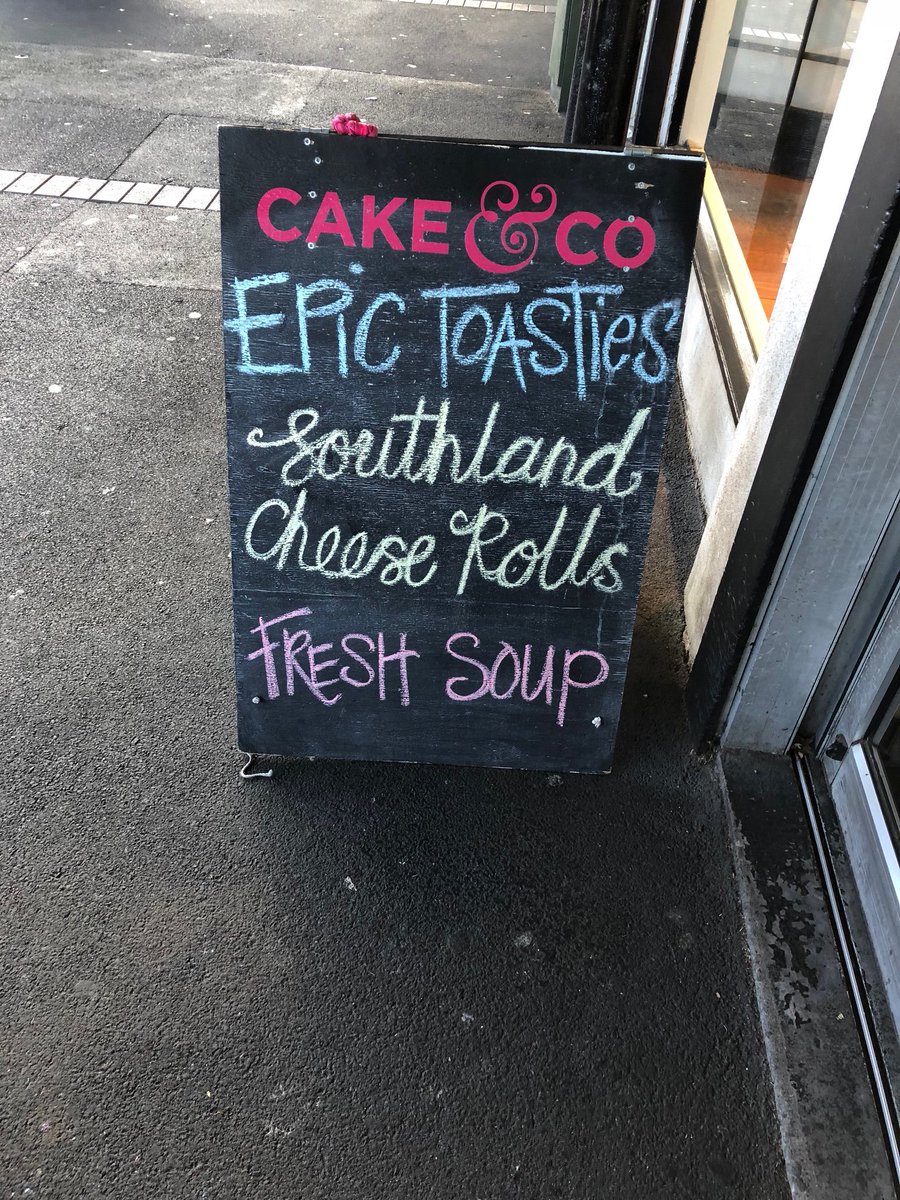 CAKE & CO
EPiC TOASTies
Southland
Cheese Rolls
FRESH SOUP